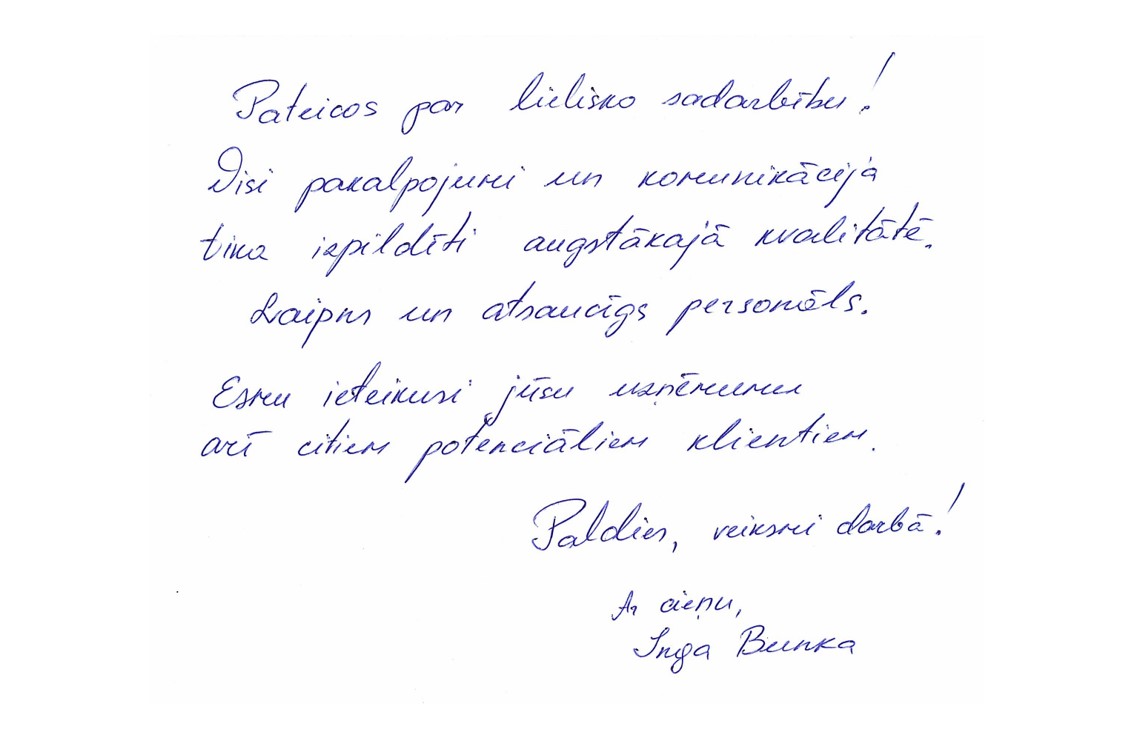 Pateicos par lielisko sadarbību!
Visi pakalpojumi un komunikācija
tika izpildīti augstākajā kvalitātē.
Laipns un atsaucīgs personāls.
Esmu ieteikusi jūsu uzņēmumu
arī citiem potenciāliem klientiem.
Paldies, veiksmi darbā!
Ar cieņu,
Inga Bunka